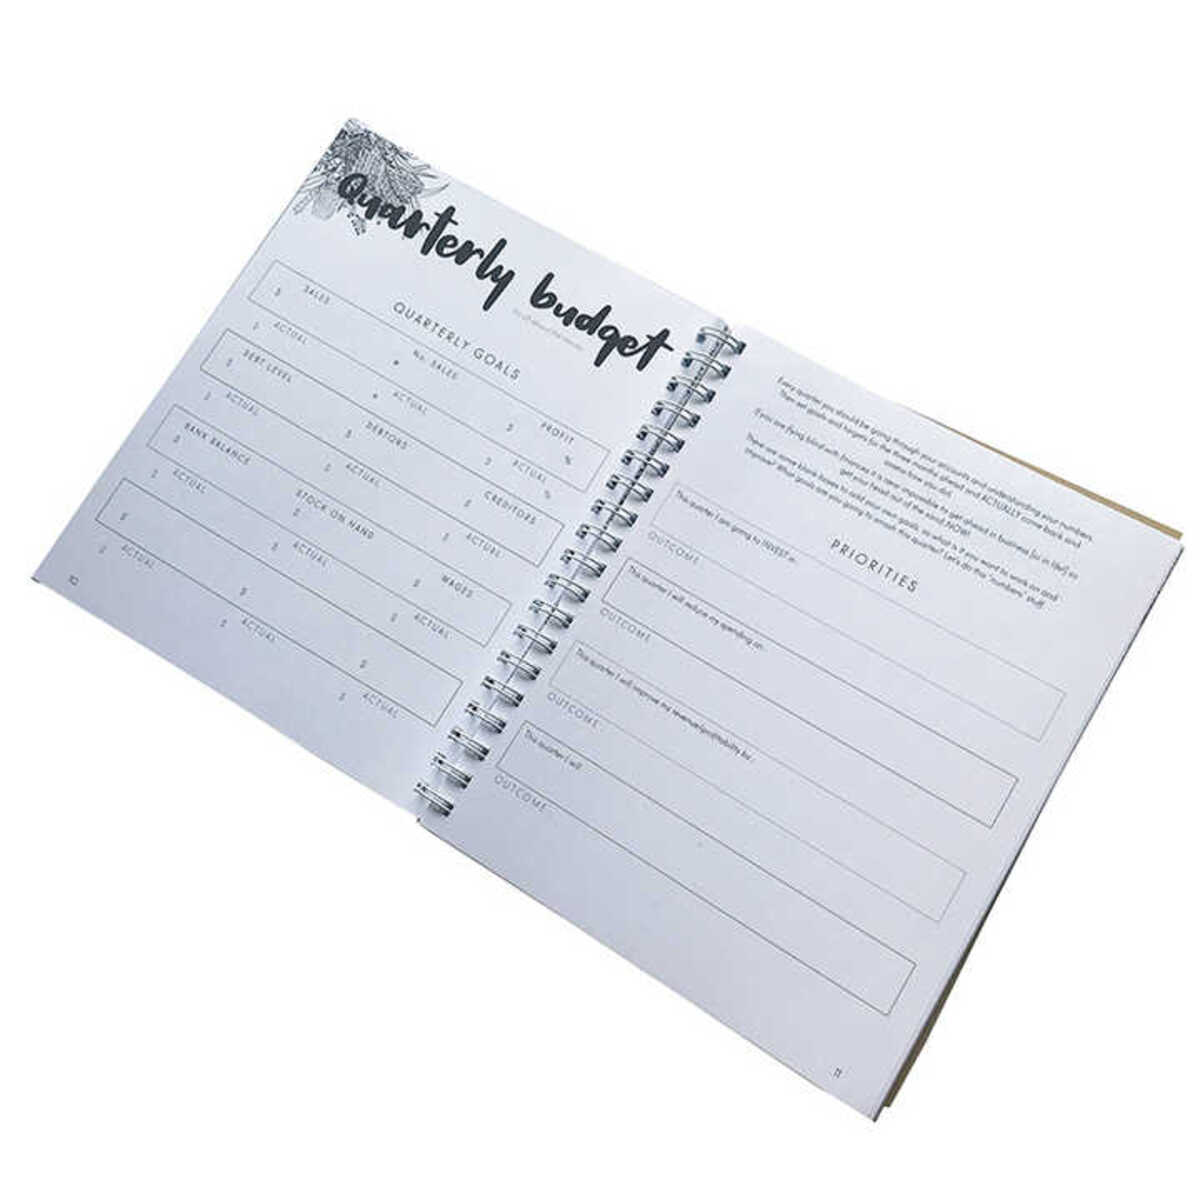 Quarterly budget
QUARTERLY GOALS
SALES No. SALES PROFIT
$ # $ %
ACTUAL ACTUAL ACTUAL
$ # $ %
DEBT LEVEL DEBTORS CREDITORS
$ $ $
ACTUAL ACTUAL ACTUAL
$ $ $
BANK BALANCE STOCK ON HAND WAGES
$ $ $
ACTUAL ACTUAL ACTUAL
$ $ $
$ $ $
ACTUAL ACTUAL ACTUAL
$ $ $
10
Every quarter you should be going through your accounts and understanding your numbers.
Then set goals and targets for the three months ahead and ACTUALLY come back and
assess how you did.
If you are flying blind with finances it is near impossible to get ahead in business [or in life!] so
get your head out of the sand NOW!
There are some blank boxes to add your own goals, so what is it you want to work on and
improve? What goals are you going to smash this quarter? Let's do this "numbers" stuff.
PRIORITIES
This quarter I am going to INVEST in:
OUTCOME
This quarter I will reduce my spending on:
OUTCOME
This quarter I will improve my revenue/profitability by:
OUTCOME
This quarter I will
OUTCOME
11